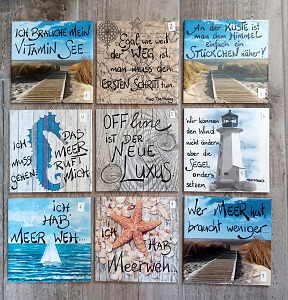 ICH BRAUCHE MEIN
VITAMIN SEE...
Egal wie weit
der WEG ist,
man muss den
ERSTEN SCHRITT tun.
An der KÜSTE ist
man dem HIMMEL
einfach ein
STÜCKCHEN näher!
ICH
MUSS
GEHEN.
DAS
MEER
RUFT
MICH
OFFline
IST DER
NEUE
LUXUS
Wir können
den Wind
nicht ändern
aber die
SEGEL
anders
setzen.
ICH
HAB'
MEER WEH...
ICH
HAB'
Meerweh...
Wer MEER hat,
braucht weniger.